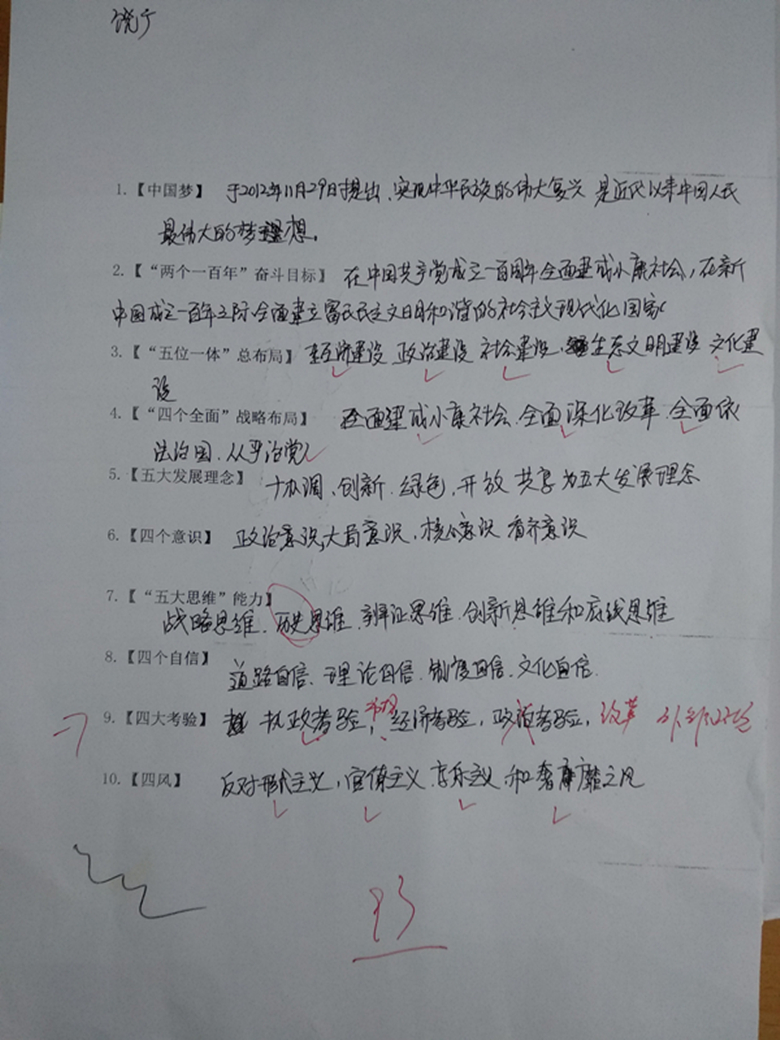 1.【中国梦】 于2012年11月29日提出、实现中华民族的伟大复兴 是近代以来中国人民
最伟大的梦想。
2.【“两个一百年”奋斗目标】 在中国共产党成立一百周年全面建成小康社会,在新
中国成立一百年之际全面建立富强民主文明和谐的社会主义现代化国家
3.【“五位一体”总布局】 经济建设 政治建设 社会建设、生态文明建设 文化建
设
4.【“四个全面”战略布局】 全面建成小康社会、全面深化改革、全面依
法治国、从严治党
5.【五大发展理念】 协调、创新、绿色、开放 共享为五大发展理念
6.【四个意识】 政治意识,大局意识,核心意识 看齐意识
7.【“五大思维”能力】
战略思维、历史思维、辩证思维、创新思维和底线思维
8.【四个自信】 道路自信、理论自信、制度自信、文化自信.
9.【四大考验】 执政考验, 市场 经济考验, 政治考验, 改革 外部环境
10.【四风】 反对形式主义,官僚主义、享乐主义,和奢靡之风
93